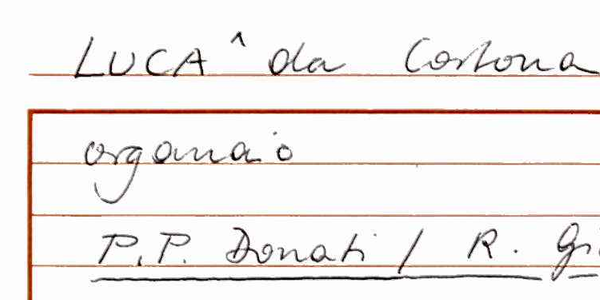 LUCA^ da Cortona
organaio
P.P. Donati / R.